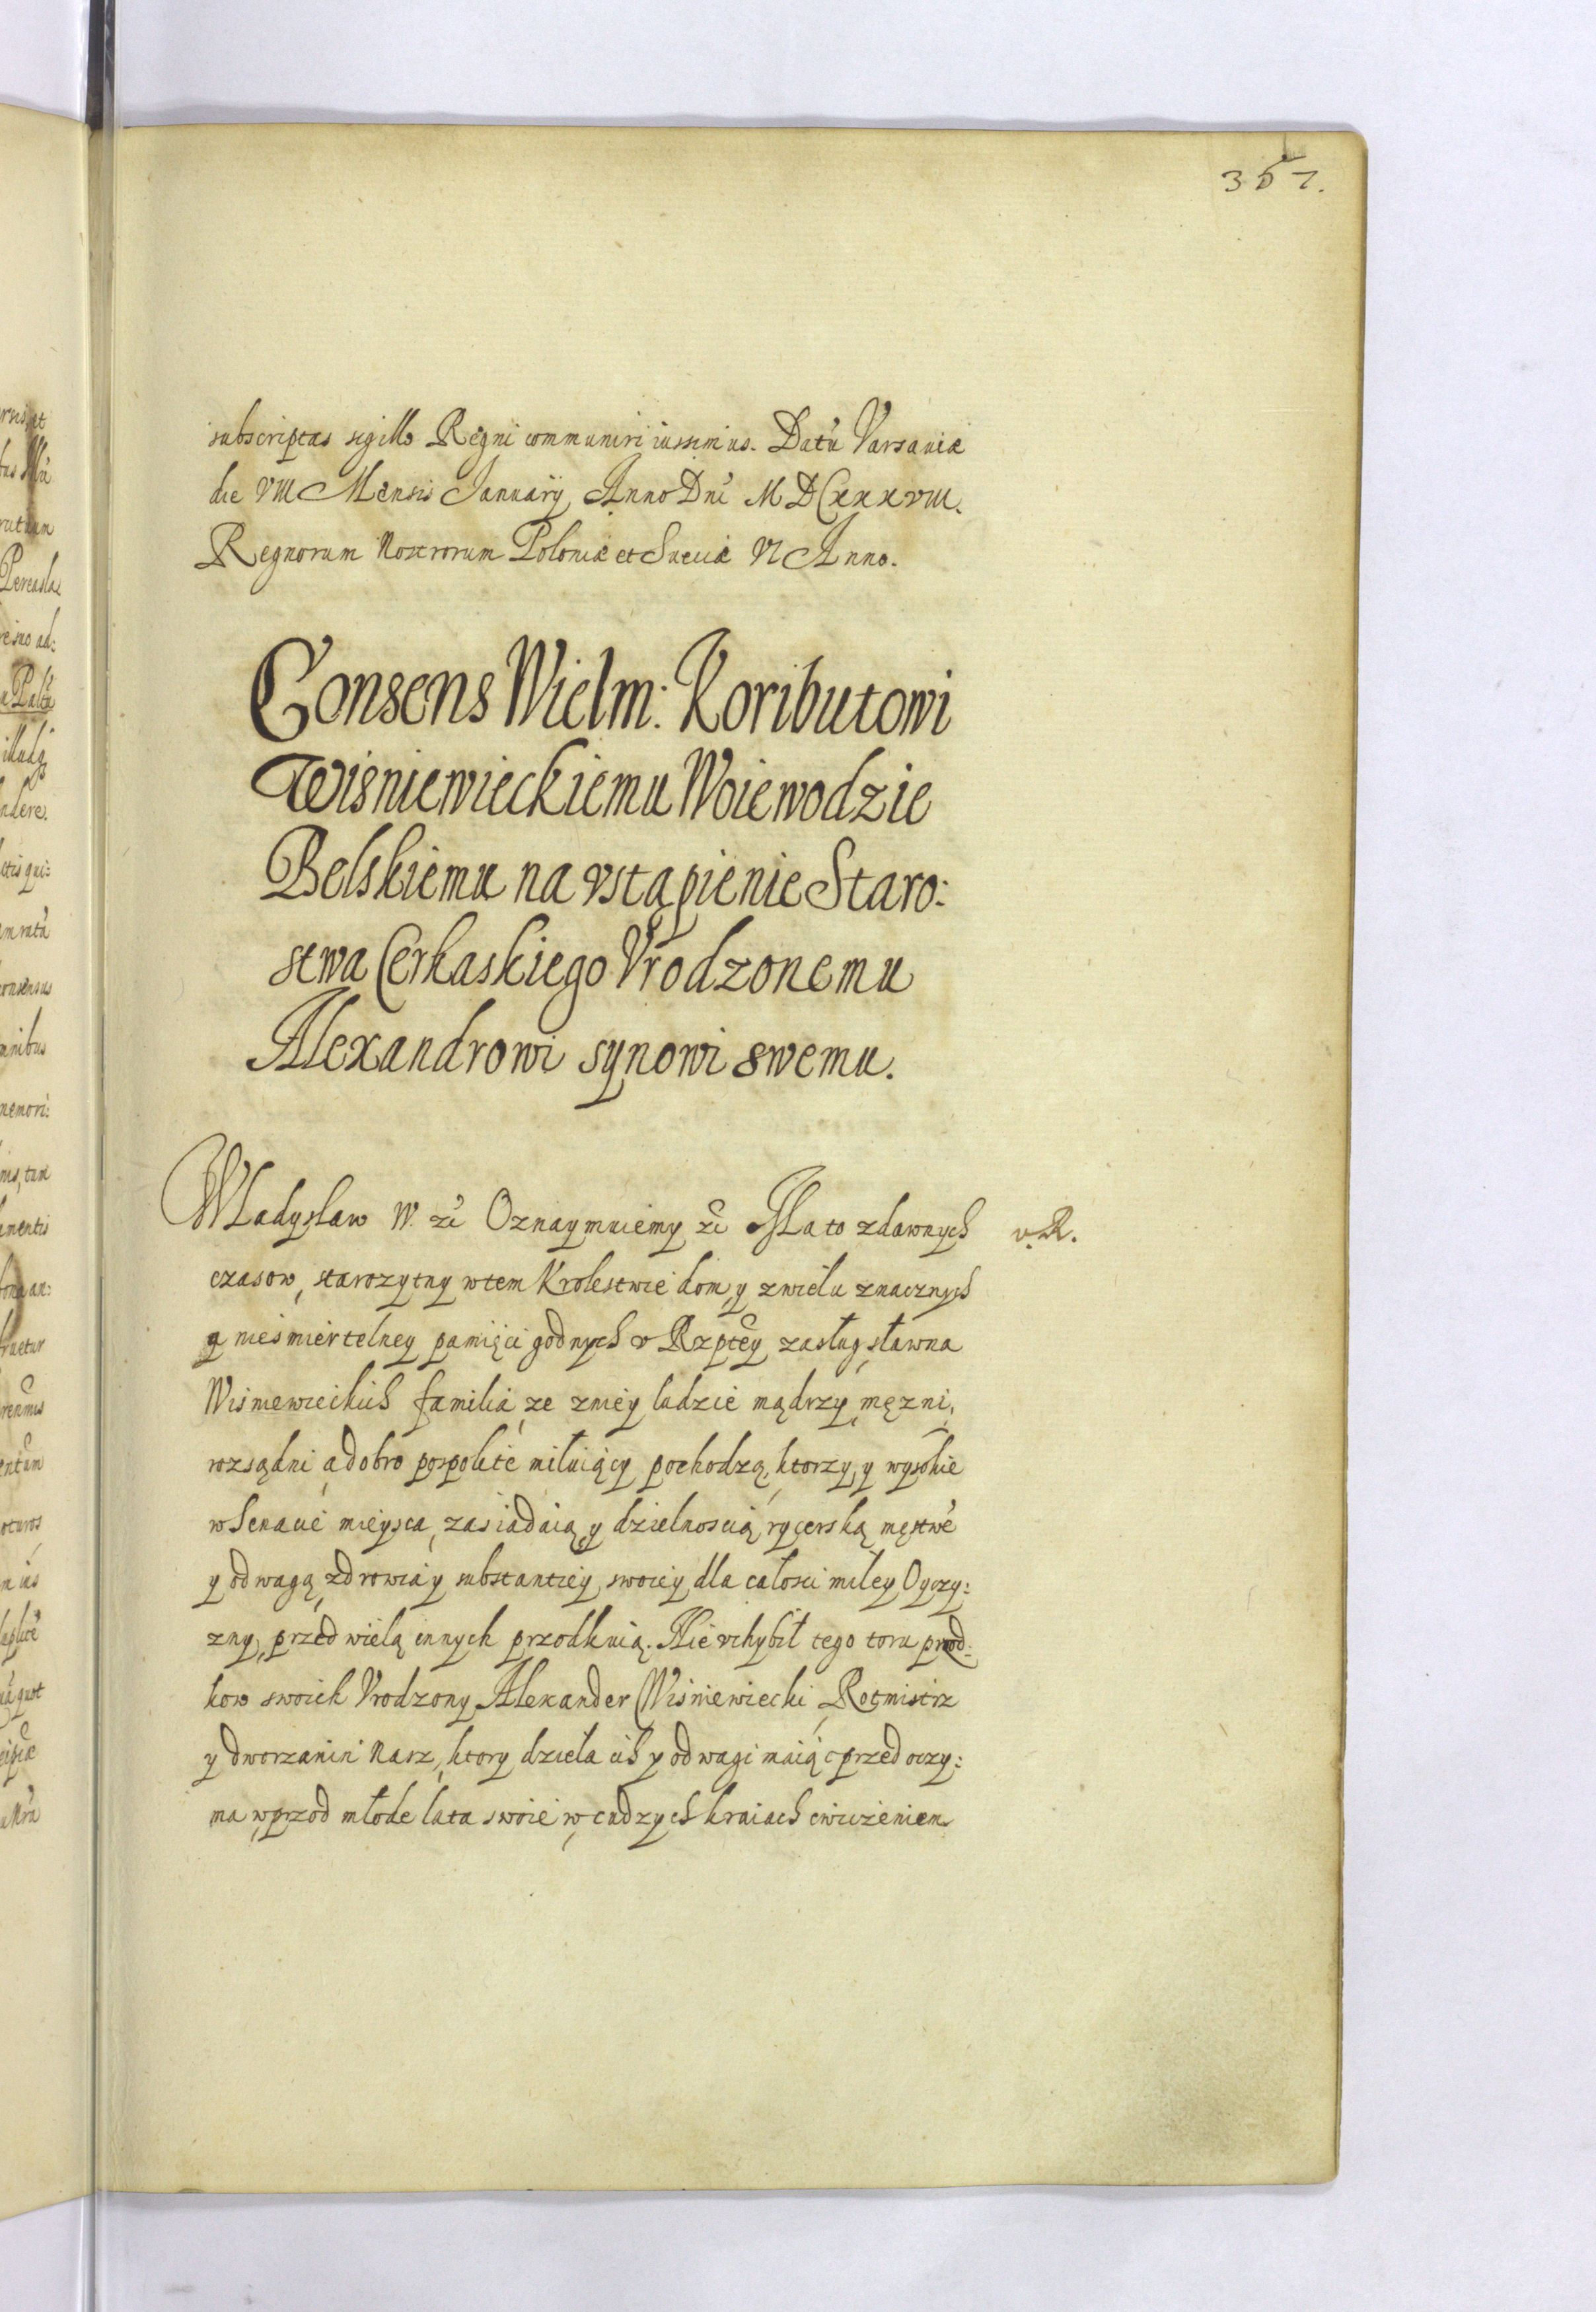 357.
subscriptas sigillo Regni communiri iussimus. Datũ Varsauiæ
die VIII Mensis Januarÿ Anno Dnĩ MDCxxxvIII.
Regnorum Nostrorum Poloniæ et Sueciæ VI Anno.
Consens Wielm: Koributowi
Wisniewieckiemu Woiewodzie
Belskiemu na vstąpienie Staro:
stwa Cerkaskiego Vrodzonemu
Alexandrowi synowi swemu.
Wladyslaw IV. etc Oznaymuiemy etc Ma to zdawnych v. R.
czasow, starozytny wtem Krolestwie dom, y zwielu znacznych
y nieśmiertelney pamięci godnych v Rzptey zasług, sławna
Wisniewieckich familia, ze zniey ludzie mądrzy, mężni,
rozsądni, a dobro pospolite miłuiący pochodzą, ktorzy, y wysokie
w Senacie mieysca, zasiadaią, y dzielnoscią rycerską męstwẽ
y odwagą, zdrowia y substantiey, swoiey dla całosci miley Oyczy:
zny, przed wielą innych przodkuią. Nie vchybił tego toru przod:
kow swoich Vrodzony Alexander Wisniewiecki, Rotmistrz
y dworzanin Nasz, ktory dzieła ich y odwagi maiąc przed oczy:
ma, wprzod młode lata swoie w cudzych kraiach cwiczeniem